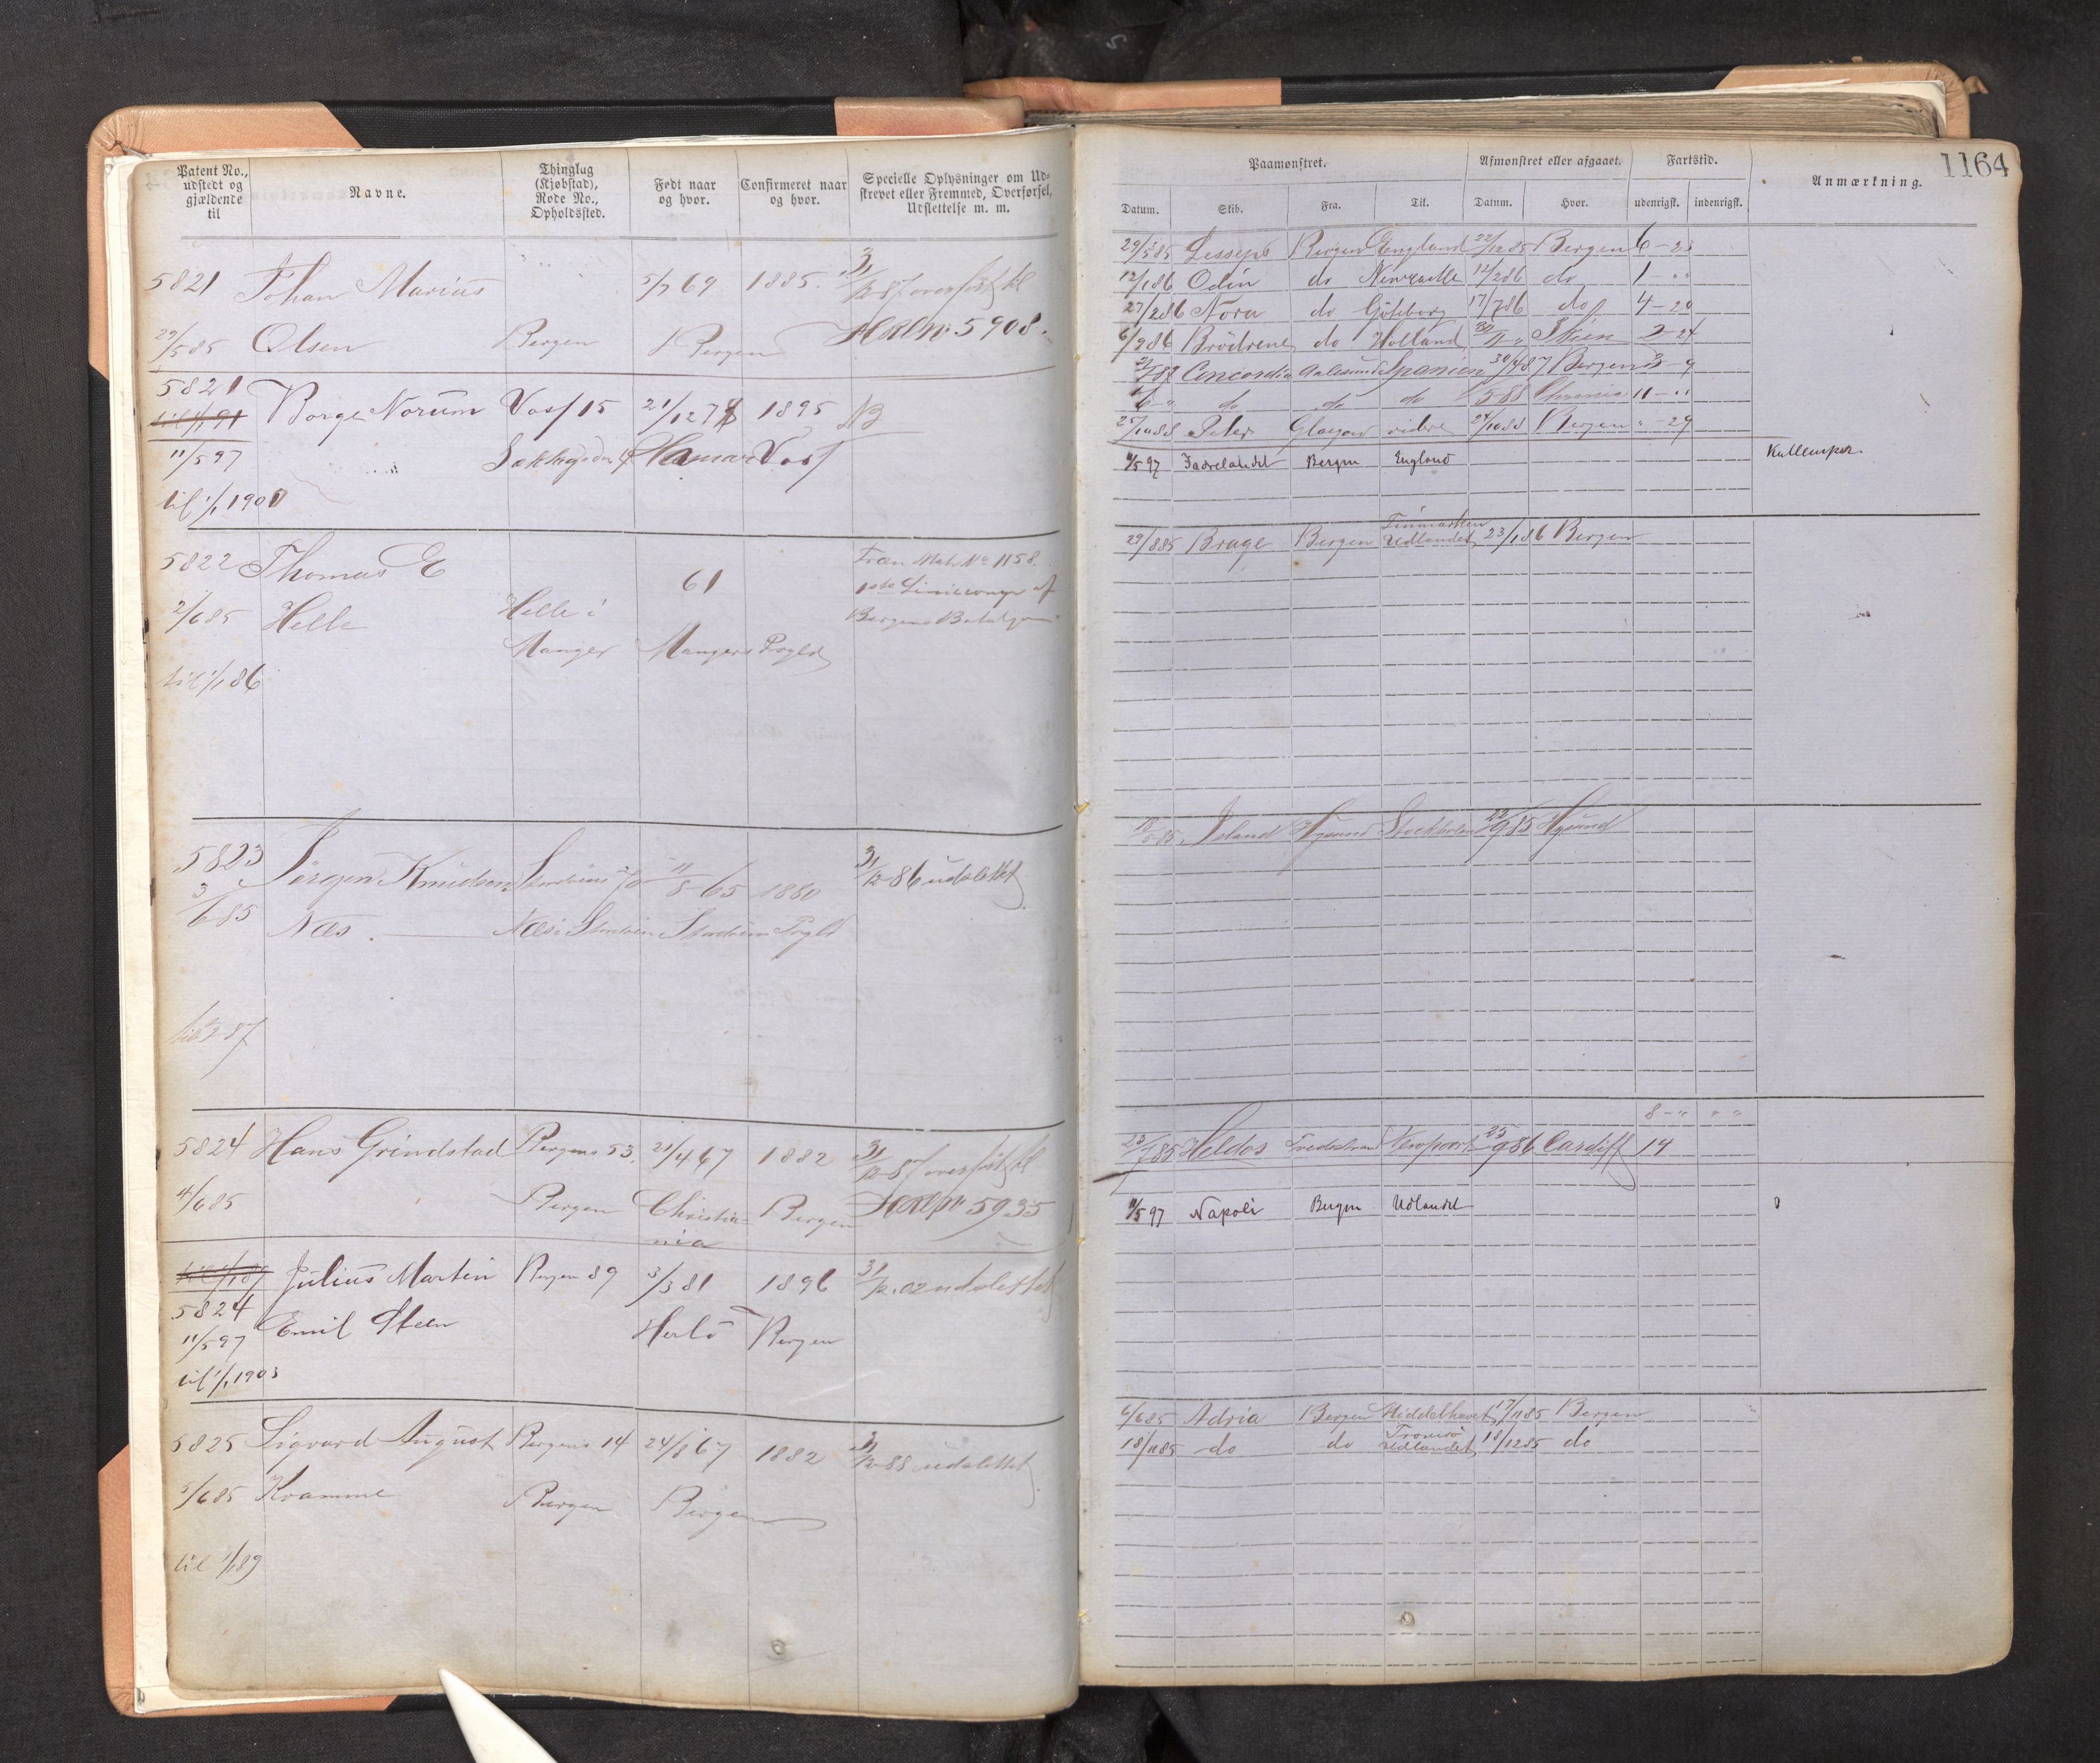 Patent No., udstedt og gjældende til
Navne.
Thinglag (Kjøbstad), Rode No., Opholdssted.
Født naar og hvor.
Confirmeret naar og hvor.
Specielle Oplysninger om Udskrevet eller Fremmed, Overførsel, Udslettelse m. m.
5821 Johan Marius 5/7 69 1885. 31/12 87 overført til
29/5 85 Olsen Bergen Bergen 5908
5821
til 1/1 91 Borge Norum Voss 15 21/12 78 1895 NB
11/5 97 Hamar Voss
til 1/1 1901
5822 Thomas E 61 No 1158.
2/6 85 Helle Helle i Bergens
Manger Mangers Prgld
til 1/1 86
5823 Jørgen Knudsen 11/8-65 1880 31/12-86 udslettet
3/6 85 Næs Næs i Prgld
til 87
5824 Hans Grindstad Bergens 53. 21/4 67 1882 31/12-87 overført til
4/6 85 Bergen Christia= Bergen 5935
nia
til 1/1 87 Julius Martin Bergen 89 3/3 81 1896 31/12.02 udslettet
5824
11/5 97 Emil Steen Herlö Bergen
til 1/1 1903
5825 Sigvard August Bergens 14 24/8 67 1882 31/12-88 udslettet
5/6 85 Kramme Bergen Bergen
til 1/1 89
1164
Paamønstret.
Afmønstret eller afgaaet.
Fartstid.
Anmærkning.
Datum. Skib. Fra. Til. Datum. Hvor. udenrigsk. indenrigsk.
29/5 85 Lesseps Bergen England 22/12 85 Bergen 6-23
12/1 86 Odin do Newcastle 12/2 86 do 1-"
27/2 86 Nora do Göteborg 17/7 86 do 4-20
6/9 86 Brödrene do Holland Skien 2-24
Concordia Aalesund Spanien 30/4 87 Bergen 3-9
do do do 11-"
25/10 88 Peter Glasgow videre 24/10 88 Bergen "-29
11/5 97 Fædrelandet Bergen England Kullemper
Finmarken
29/8 85 Brage Bergen Udlandet 23/1 86 Bergen
Island Stockholm 22/9 85
8-" " "
23/7 85 Newport 25/9 86 Cardiff 14
11/5 97 Napoli Bergen Udlandet
6/6 85 Adria Bergen Middelhavet 17/11 85 Bergen
Tromsö
18/11 85 do do Udlandet 18/12 85 do